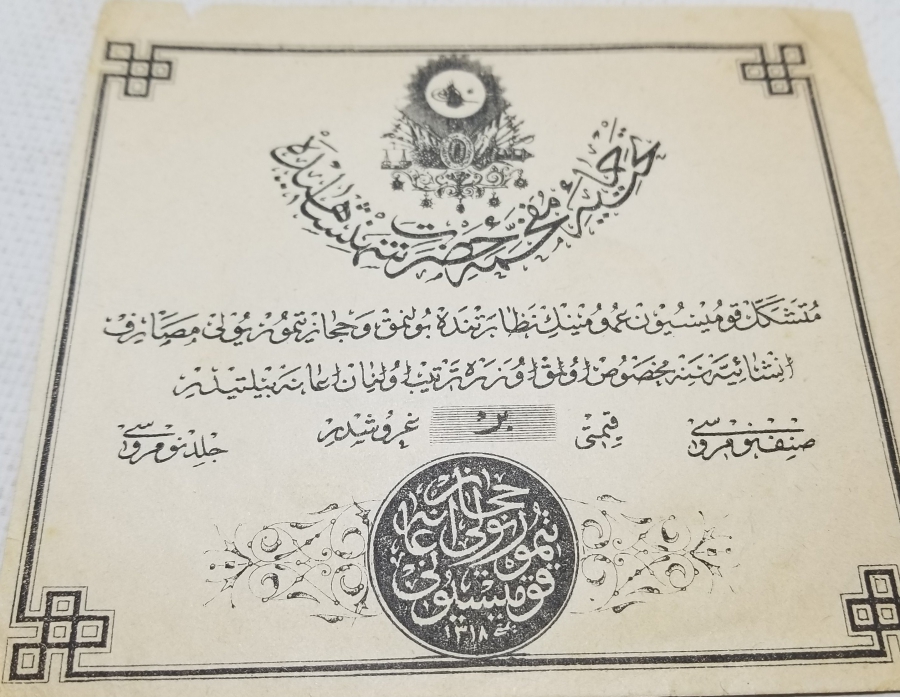 تحت حمایهٔ مفخمهٔ حضرت شهنشاهیده
متشکل قومیسیون عمومینك نظارتنده بولنمق و حجاز تیمور یولی مصارف
انشائیه‌سنه مخصوص اولمق اوزره ترتیب اولنان اعانه بیلتیدر
صنف نومروسی قیمتی بر غروشدر جلد نومروسی
حجاز
تیمور یولی اعانه
قومیسیونی
سنه ١٣١٨